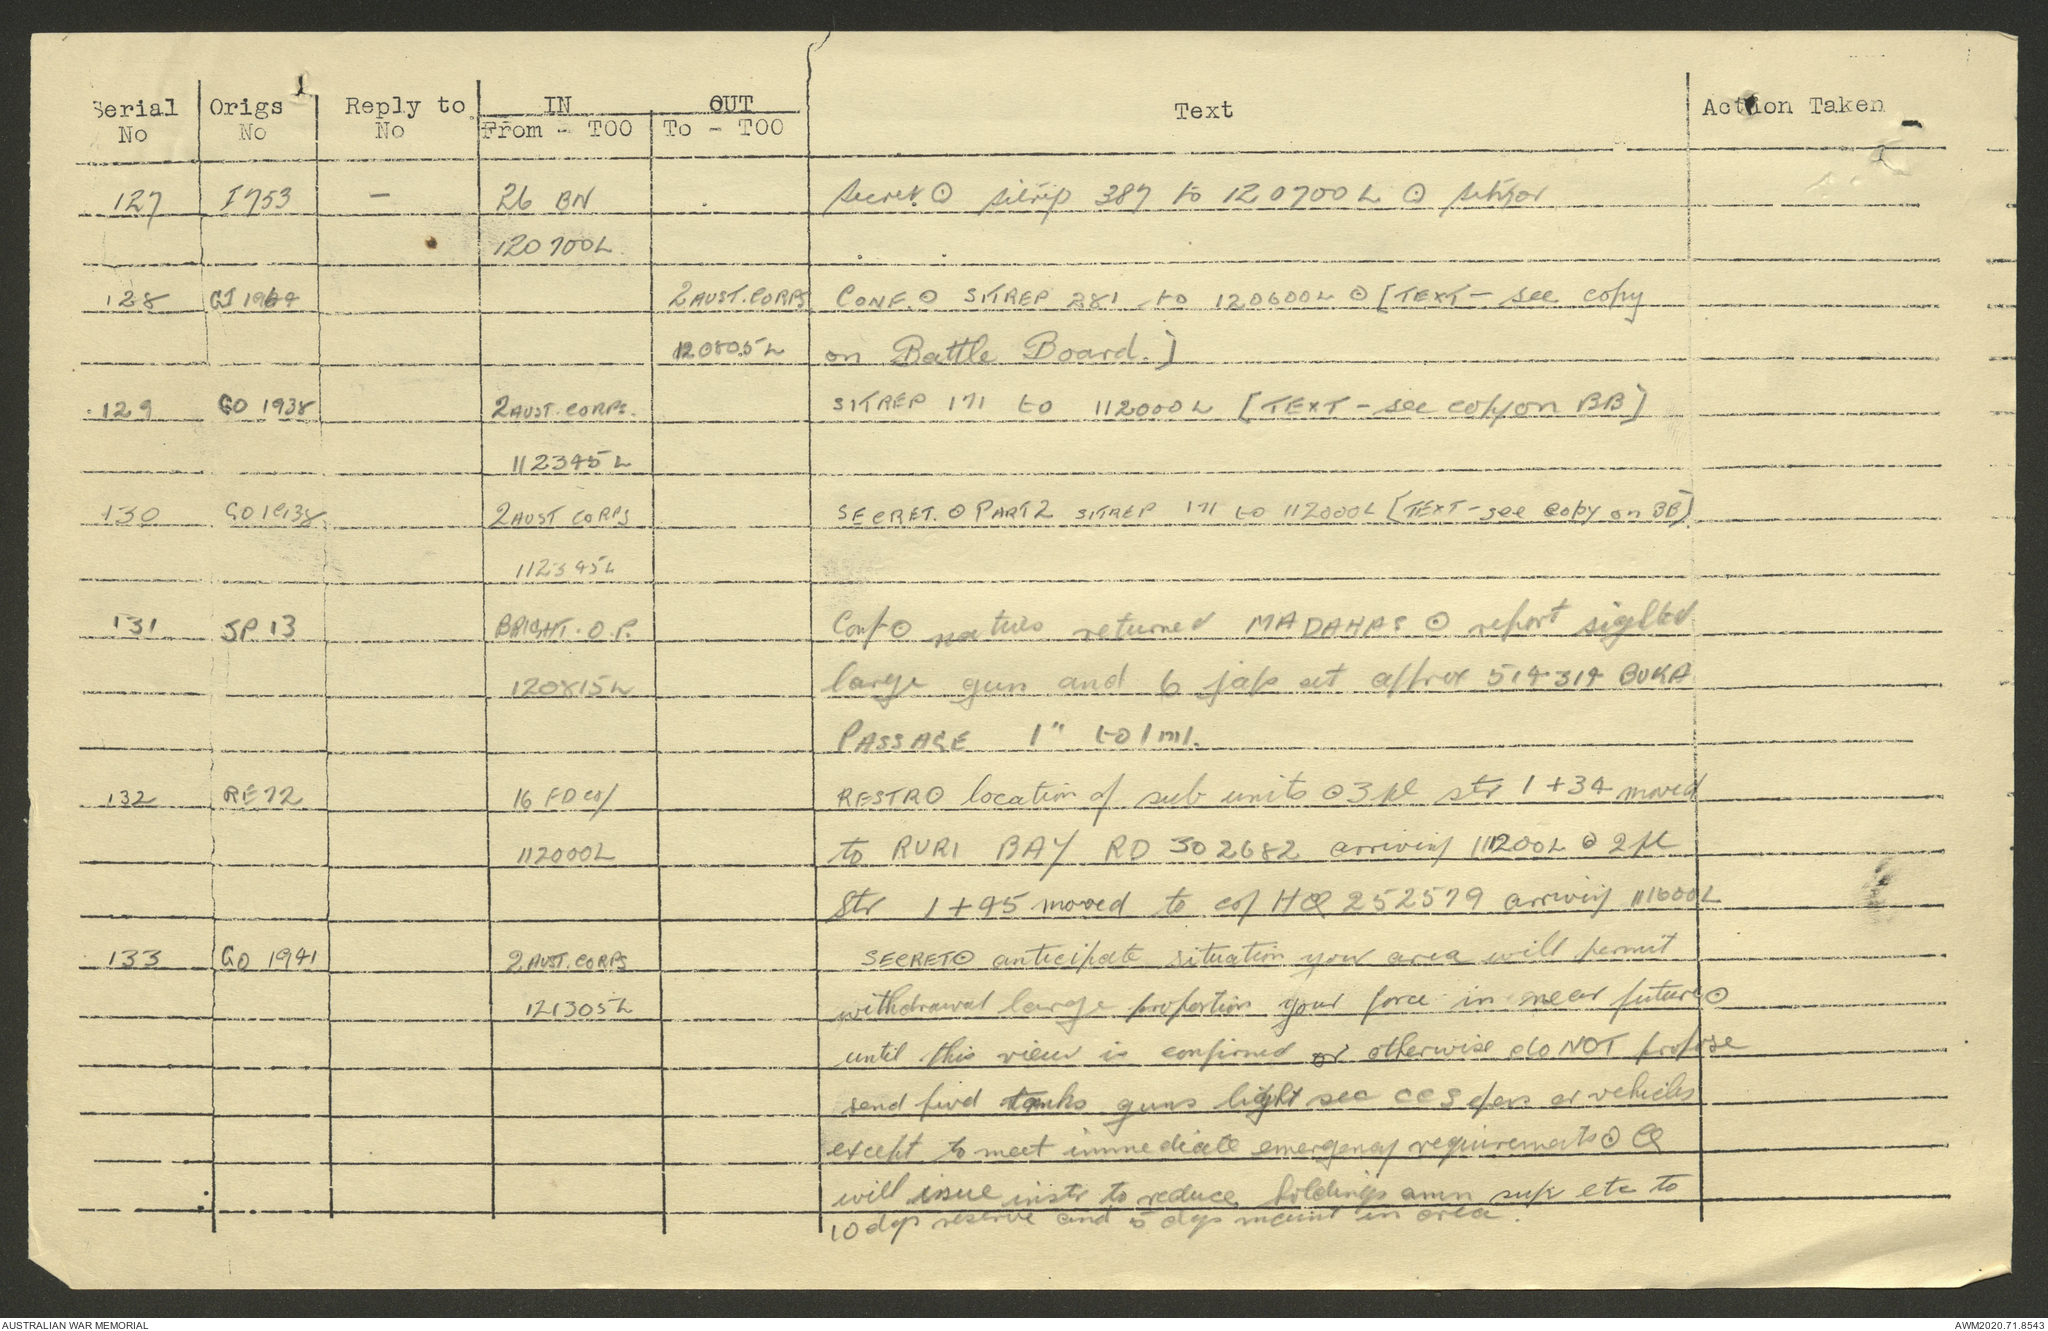 Serial Origs Reply to IN OUT Text Action Taken
No No No From - TOO To - TOO
127 I753 — 26 BN Secret ⊙ sitrep 387 to 120700L ⊙
120700L
128 GI 1944 2 AUST. CORPS CONF ⊙ SITREP 281 to 120600L ⊙ [TEXT - see copy
120805L on Battle Board.]
129 GO 1938 2 AUST. CORPS. SITREP 171 to 112000L [TEXT - see copy on BB]
112345L
130 GO 1938 2 AUST CORPS SECRET. ⊙ PART 2 SITREP 171 to 112000L [TEXT - see copy on BB]
112345L
131 JP 13 BRIGHT. O.P. Conf ⊙ natives returned MADAHAS ⊙ report sighted
120815L large gun and 6 japs at approx 514314 BUKA
PASSAGE 1" to 1 ml.
132 RE 72 16 FD coy RESTR ⊙ location of sub units ⊙ 3 pl str 1 + 34 moved
112000L to RURI BAY RD 302682 arriving 111200L ⊙ 2 pl
Str 1 + 45 moved to coy HQ 252579 arriving 111600L
133 GO 1941 2 AUST. CORPS SECRET ⊙ anticipate situation your area will permit
121305L withdrawal large proportion your force in near future ⊙
until this view is confirmed or otherwise do NOT propose
send fwd tanks guns light sec CCS or vehicles
except to meet immediate emergency requirements ⊙ Q
will issue instr to reduce holdings amn sup etc to
10 dys reserve and 5 dys maint in area.
AUSTRALIAN WAR MEMORIAL AWM2020.71.8543